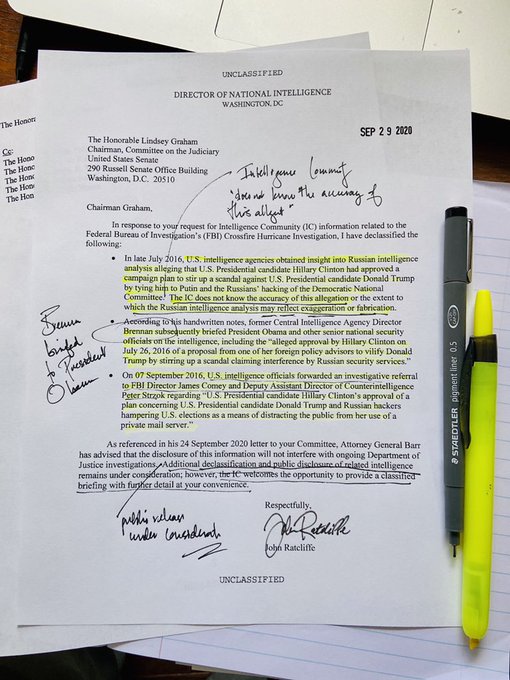 The Honora
Cc:
The Hono
The Hono
The Hono
The Hono
The Hon
UNCLASSIFIED
DIRECTOR OF NATIONAL INTELLIGENCE
WASHINGTON, DC
SEP 29 2020
The Honorable Lindsey Graham
Chairman, Committee on the Judiciary
United States Senate
290 Russell Senate Office Building
Washington, D.C. 20510
Intelligence Commity
"does not know the accuracy of
this allegat"
Chairman Graham,
In response to your request for Intelligence Community (IC) information related to the
Federal Bureau of Investigation's (FBI) Crossfire Hurricane Investigation, I have declassified the
following:
• In late July 2016, U.S. intelligence agencies obtained insight into Russian intelligence
analysis alleging that U.S. Presidential candidate Hillary Clinton had approved a
campaign plan to stir up a scandal against U.S. Presidential candidate Donald Trump by
tying him to Putin and the Russians' hacking of the Democratic National
Committee. The IC does not know the accuracy of this allegation or the extent to
which the Russian intelligence analysis may reflect exaggeration or fabrication.
• According to his handwritten notes, former Central Intelligence Agency Director
Brennan subsequently briefed President Obama and other senior national security
officials on the intelligence, including the "alleged approval by Hillary Clinton on
July 26, 2016 of a proposal from one of her foreign policy advisors to vilify Donald
Trump by stirring up a scandal claiming interference by Russian security services."
• On 07 September 2016, U.S. intelligence officials forwarded an investigative referral
to FBI Director James Comey and Deputy Assistant Director of Counterintelligence
Peter Strzok regarding "U.S. Presidential candidate Hillary Clinton's approval of a
plan concerning U.S. Presidential candidate Donald Trump and Russian hackers
hampering U.S. elections as a means of distracting the public from her use of a
private mail server."
briefed
to President
Obama
As referenced in his 24 September 2020 letter to your Committee, Attorney General Barr
has advised that the disclosure of this information will not interfere with ongoing Department of
Justice investigations. Additional declassification and public disclosure of related intelligence
remains under consideration; however, the IC welcomes the opportunity to provide a classified
briefing with further detail at your convenience.
public release
under
Respectfully,
John Ratcliffe
John Ratcliffe
UNCLASSIFIED
STAEDTLER pigment liner 0.5